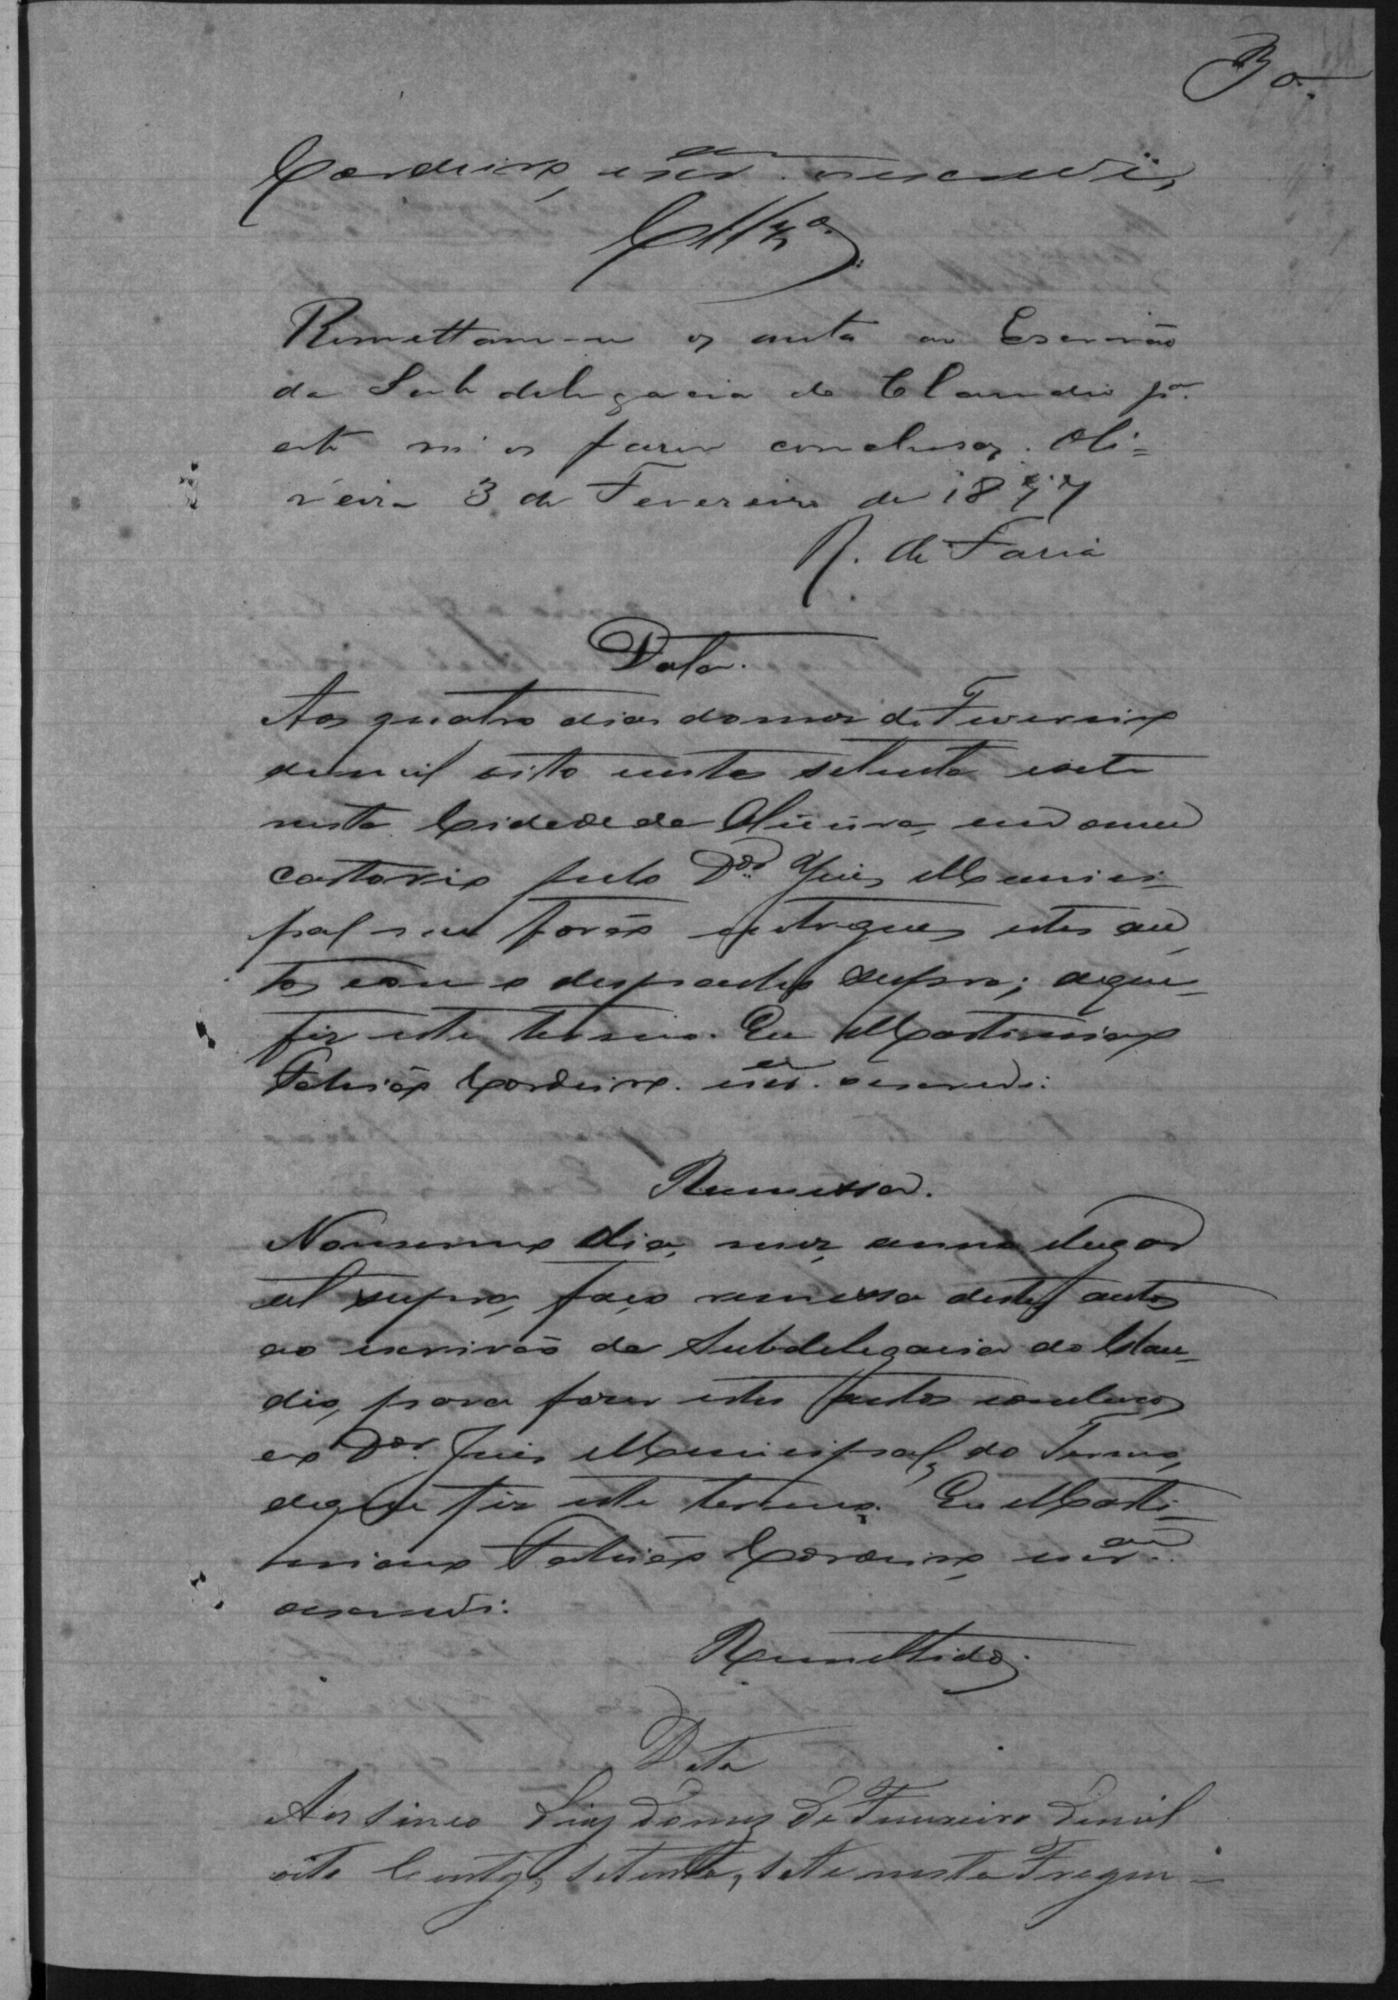 30.
Cordeiro, escr.am o escrevi,
Cllz.o
Remettam-se os autos ao Escrivão
da Subdelegacia do Claudio p.a
este m'os fazer conclusos. Oli=
veira 3 de Fevereiro de 1877
R. de Faria
Data.
Aos quatro dias do mez de Fevereiro
de mil oito centos setenta e sete
nesta Cidade de Oliveira, em o meu
cartorio pelo D.or Juiz Munici-
pal me forão entregues estes au
tos com o despacho supra; de que
fiz este termo. Eu Martiniano
Cordeiro. escr.am o escrevi:
Remessa.
No mesmo dia, mez, anno e lugar
ut supra, faço remessa destes autos
ao escrivão da Subdelegacia do Clau-
dio, para fazer estes autos conclusos
ao D.or Juiz Municipal do Termo,
de que fiz este termo. Eu Marti-
niano Cordeiro, escr.am
o escrevi:
Remettidos.
Data
Aos sinco dias do mez de Fevereiro de mil
oito Centos, setenta, e sete nesta Fregue-